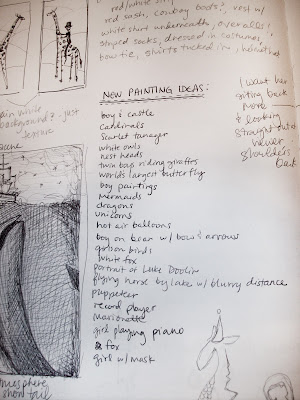 red/white str
red sash, cowboy boots?, vest w/
white shirt underneath, overalls!,
striped socks, dressed in costumes,
bow tie, shirts tucked in, helmet hat
NEW PAINTING IDEAS:
boy & castle
cardinals
scarlet tanager
white owls
nest heads
two boys riding giraffes
worlds largest butterfly
boy paintings
mermaids
dragons
unicorns
hot air balloons
boy on bear w/ bow & arrows
girl on birds
white fox
portrait of Luke Dooling
flying horse by lake w/ blurry distance
puppeteer
record player
Marionette
girl playing piano
& fox
girl w/ mask
I want her
sitting back
more
& looking
straight into
viewer
shoulders
back
background? - just